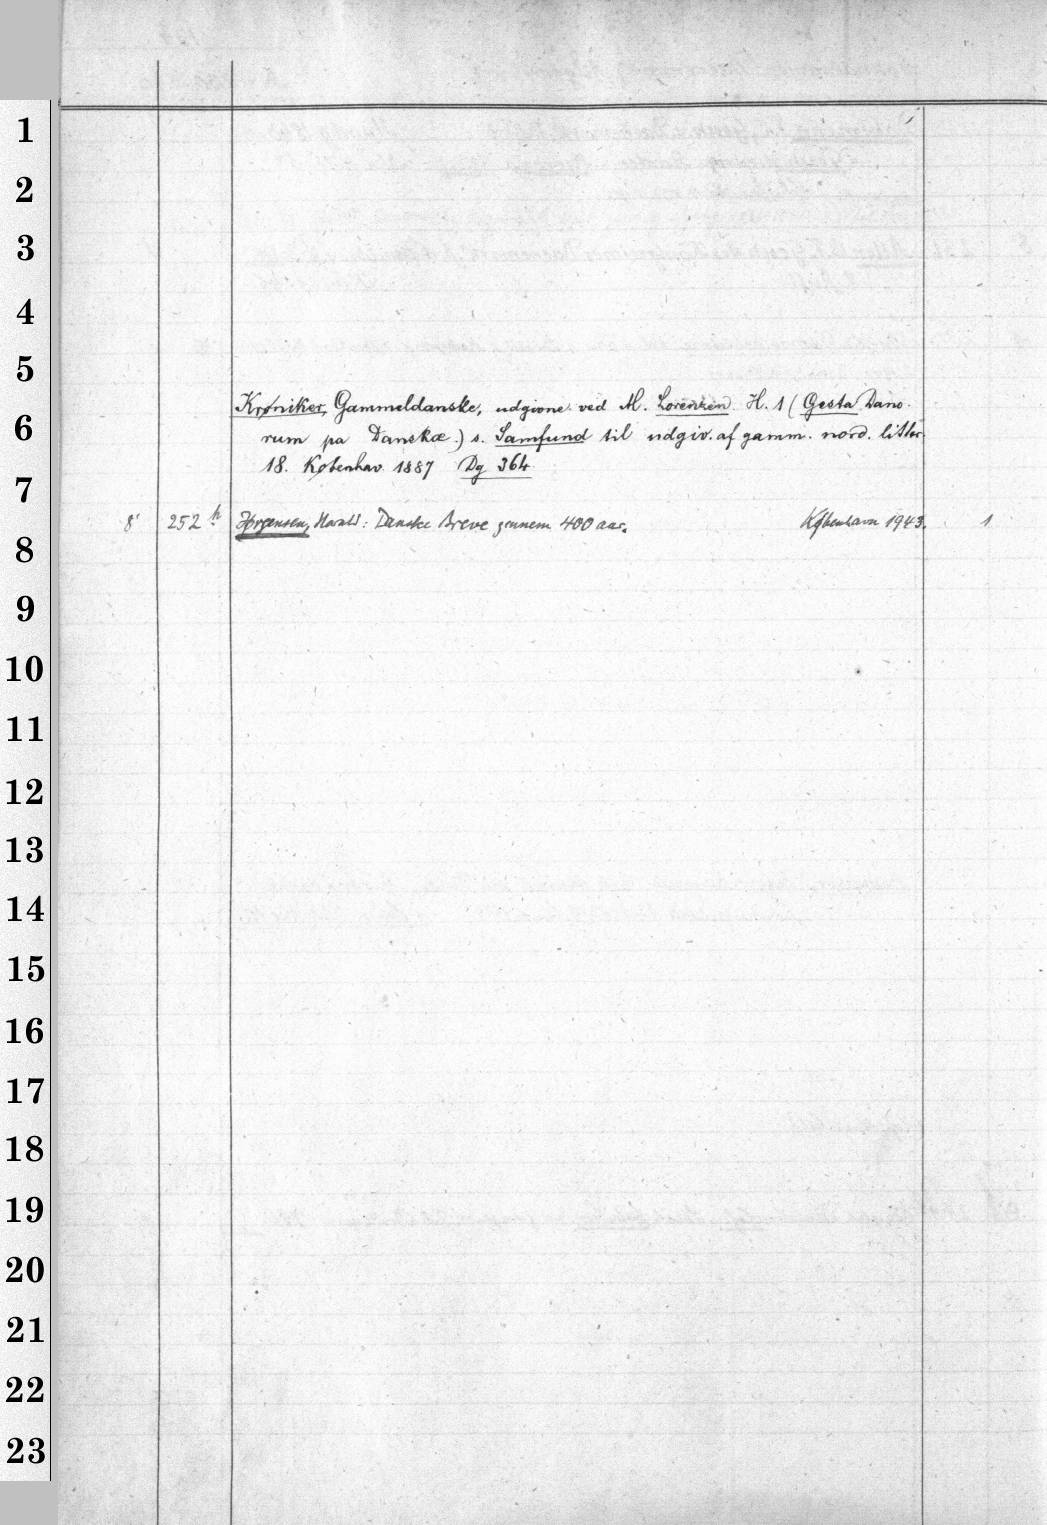 1
2
3
4
5
Krøniker, Gammeldanske, udgivne ved M. Lorenzen. H. 1 (Gesta Dano-
6
rum pa Danskæ.) s. Samfund til udgiv. af gamm. nord. litter.
18. Københav. 1887 Dg 364
7
8° 252 h Jørgensen, Harald: Danske Breve gennem 400 aar. København 1943. 1
8
9
10
11
12
13
14
15
16
17
18
19
20
21
22
23